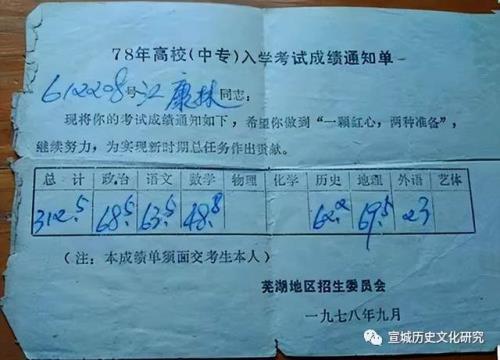 78年高校(中专)入学考试成绩通知单
612208号江康林同志:
现将你的考试成绩通知如下,希望你做到“一颗红心,两种准备”,
继续努力,为实现新时期总任务作出贡献。
总 计 政治 语文 数学 物理 化学 历史 地理 外语 艺体
312.5 68.5 63.5 48.8 62.2 69.5 23
(注:本成绩单须面交考生本人)
芜湖地区招生委员会
一九七八年九月
宣城历史文化研究